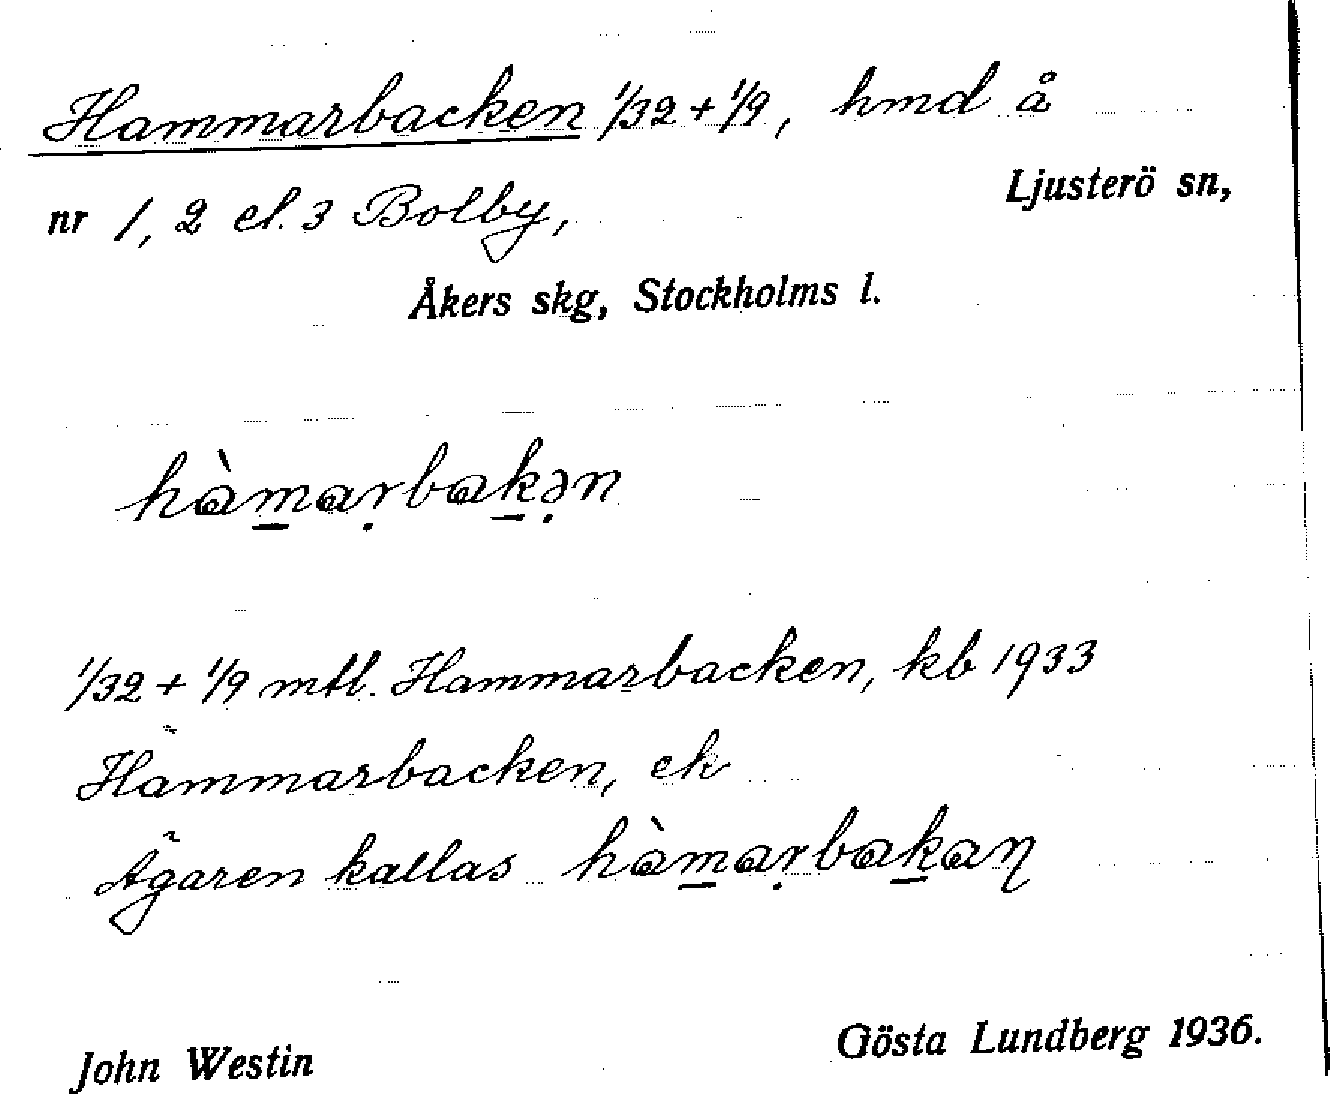 Hammarbacken 1/32 + 1/9, hmd å
Ljusterö sn,
nr 1, 2 el. 3 Bolby,
Åkers skg, Stockholms l.
hàm̠aṛbak̠ə̣n
1/32 + 1/9 mtl. Hammarbacken, kb 1933
Hammarbacken, ek
Ägaren kallas hàm̠aṛbak̠aɳ
John Westin
Gösta Lundberg 1936.